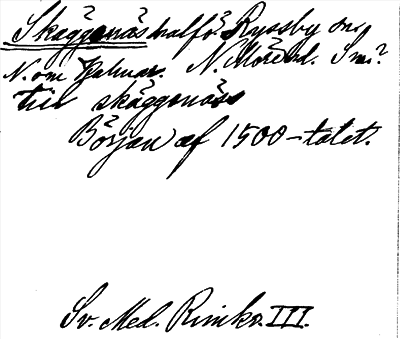 Skäggenäs halfö. Ryssby sn,
N. om Kalmar. N. Möre hd. Smål.
till skäggenäss
Början af 1500-talet.
Sv. Med. Rimkr. III.